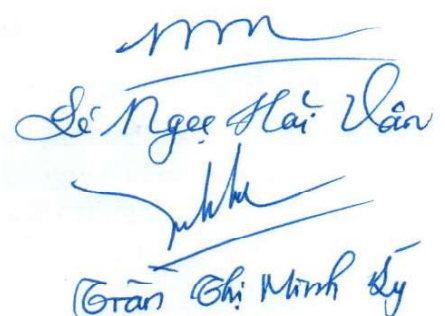 Lê Ngọc Hải Vân
Trần Thị Minh Kỳ